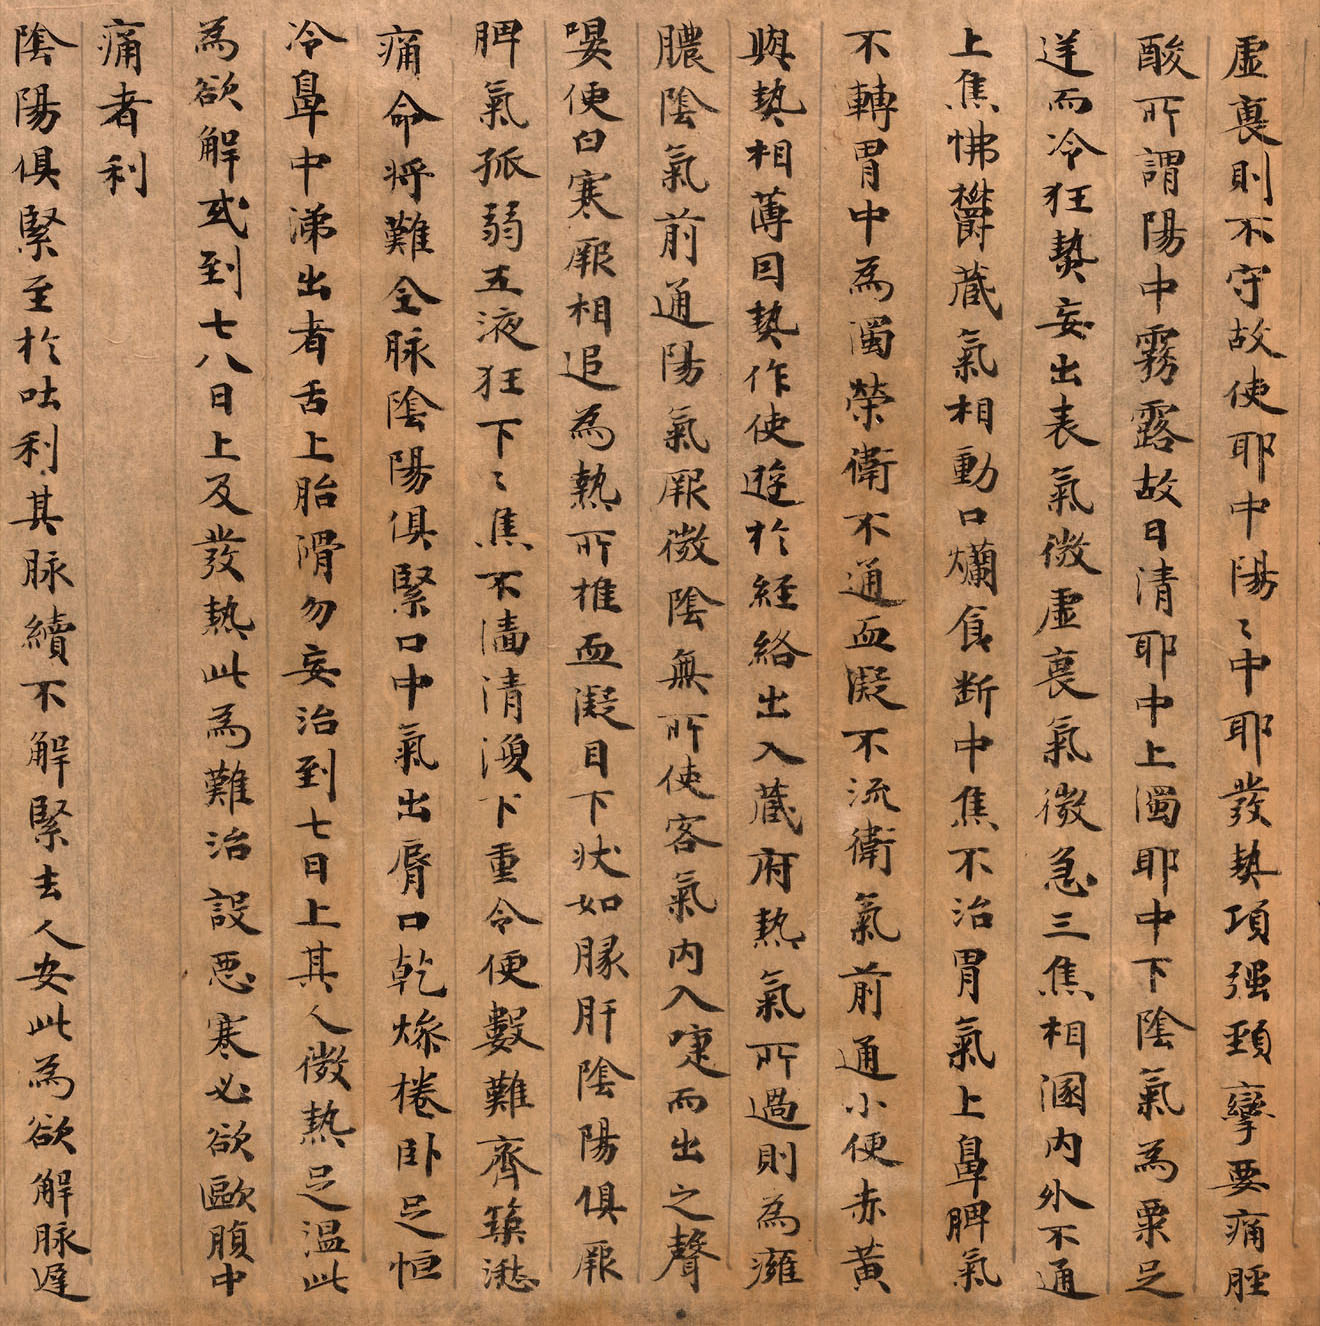 虛裏則不守故使耶中陽〻中耶發熱項强頸攣要痛脛
酸所謂陽中霧露故曰清耶中上濁耶中下陰氣為栗足
逆而冷狂熱妄出表氣微虛裏氣微急三焦相溷内外不通
上焦怫欝蔵氣相動口爛食断中焦不治胃氣上鼻脾氣
不轉胃中為濁榮衛不通血凝不流衛氣前通小便赤黄
與熱相薄因熱作使遊於經絡出入蔵府熱氣所過則為癰
膿陰氣前通陽氣厥微陰無所使客氣内入嚏而出之聲
嗢便白寒厥相追為熱所推血凝自下状如豚肝陰陽俱厥
脾氣孤弱五液狂下〻焦不濇清溲下重令便數難齊築湫
痛命将難全脉陰陽俱緊口中氣出脣口乾燥惓卧足恒
冷鼻中涕出者舌上胎滑勿妄治到七日上其人微熱足温此
為欲解或到七八日上反發熱此為難治設惡寒必欲歐腹中
痛者利
陰陽俱緊至於吐利其脉續不解緊去人安此為欲解脉遲